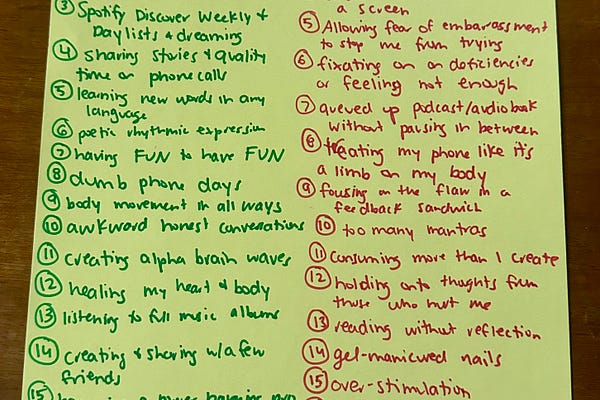 ③ Spotify Discover Weekly &
Daylists & dreaming
④ sharing stories & quality
time on phone calls
⑤ learning new words in any
language
⑥ poetic rhythmic expression
⑦ having FUN to have FUN
⑧ dumb phone days
⑨ body movement in all ways
⑩ awkward honest conversations
⑪ creating alpha brain waves
⑫ healing my heart & body
⑬ listening to full music albums
⑭ creating & sharing w/a few
friends
⑮
a screen
⑤ Allowing fear of embarrassment
to stop me from trying
⑥ fixating on deficiencies
or feeling not enough
⑦ queued up podcast/audiobook
without pausing in between
⑧ treating my phone like it's
a limb on my body
⑨ focusing on the flaw in a
feedback sandwich
⑩ too many mantras
⑪ consuming more than I create
⑫ holding onto thoughts from
those who hurt me
⑬ reading without reflection
⑭ gel-manicured nails
⑮ over-stimulation